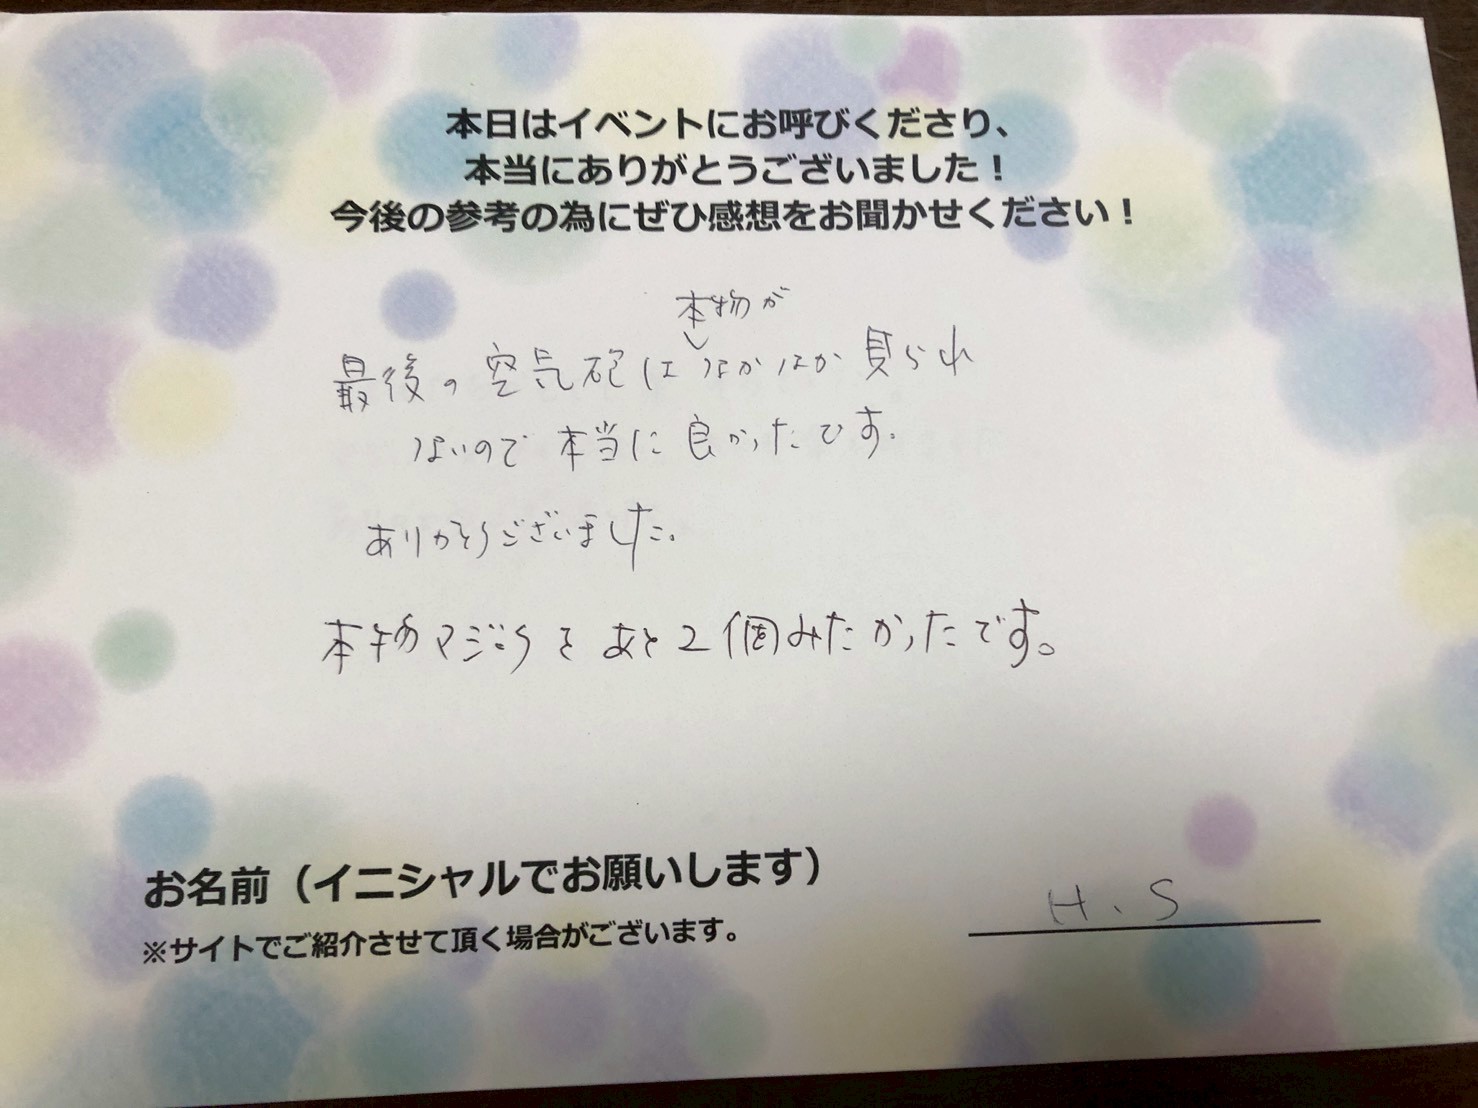 本日はイベントにお呼びくださり、
本当にありがとうございました！
今後の参考の為にぜひ感想をお聞かせください！
本物が
最後の空気砲はなかなか見られ
ないので本当に良かったです。
ありがとうございました。
本物マジックをあと2個みたかったです。
お名前（イニシャルでお願いします）
H.S
※サイトでご紹介させて頂く場合がございます。